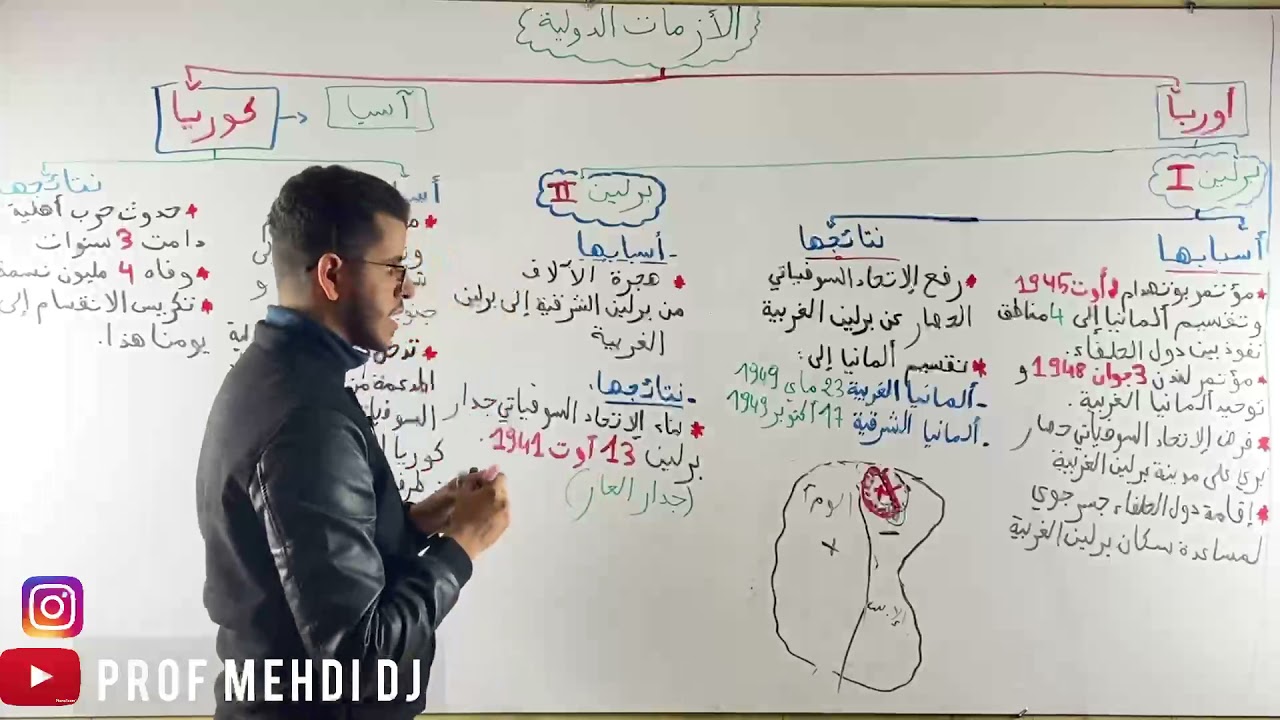 الأزمات الدولية
أوربا
برلين I
أسبابها
* مؤتمر بوتسدام أوت 1945
وتقسيم ألمانيا إلى 4 مناطق
نفوذ بين دول الحلفاء.
* مؤتمر لندن 3 جوان 1948 و
توحيد ألمانيا الغربية.
* فرض الإتحاد السوفياتي حصار
بري على مدينة برلين الغربية
* إقامة دول الحلفاء جسر جوي
لمساعدة سكان برلين الغربية
نتائجها
* رفع الإتحاد السوفياتي
الحصار عن برلين الغربية
* تقسيم ألمانيا إلى:
- ألمانيا الغربية 23 ماي 1949
- ألمانيا الشرقية 17 أكتوبر 1949
برلين II
- أسبابها
* هجرة الآلاف
من برلين الشرقية إلى برلين
الغربية
- نتائجها:
* بناء الإتحاد السوفياتي جدار
برلين 13 أوت 1941.
(جدار العار)
كوريا
آسيا
المدعمة من
السوفيا
كوريا
نتائجها
* حدوث حرب أهلية
دامت 3 سنوات
* وفاه 4 مليون نسمة
* تكريس الانقسام إلى
يومنا هذا.
PROF MEHDI DJ